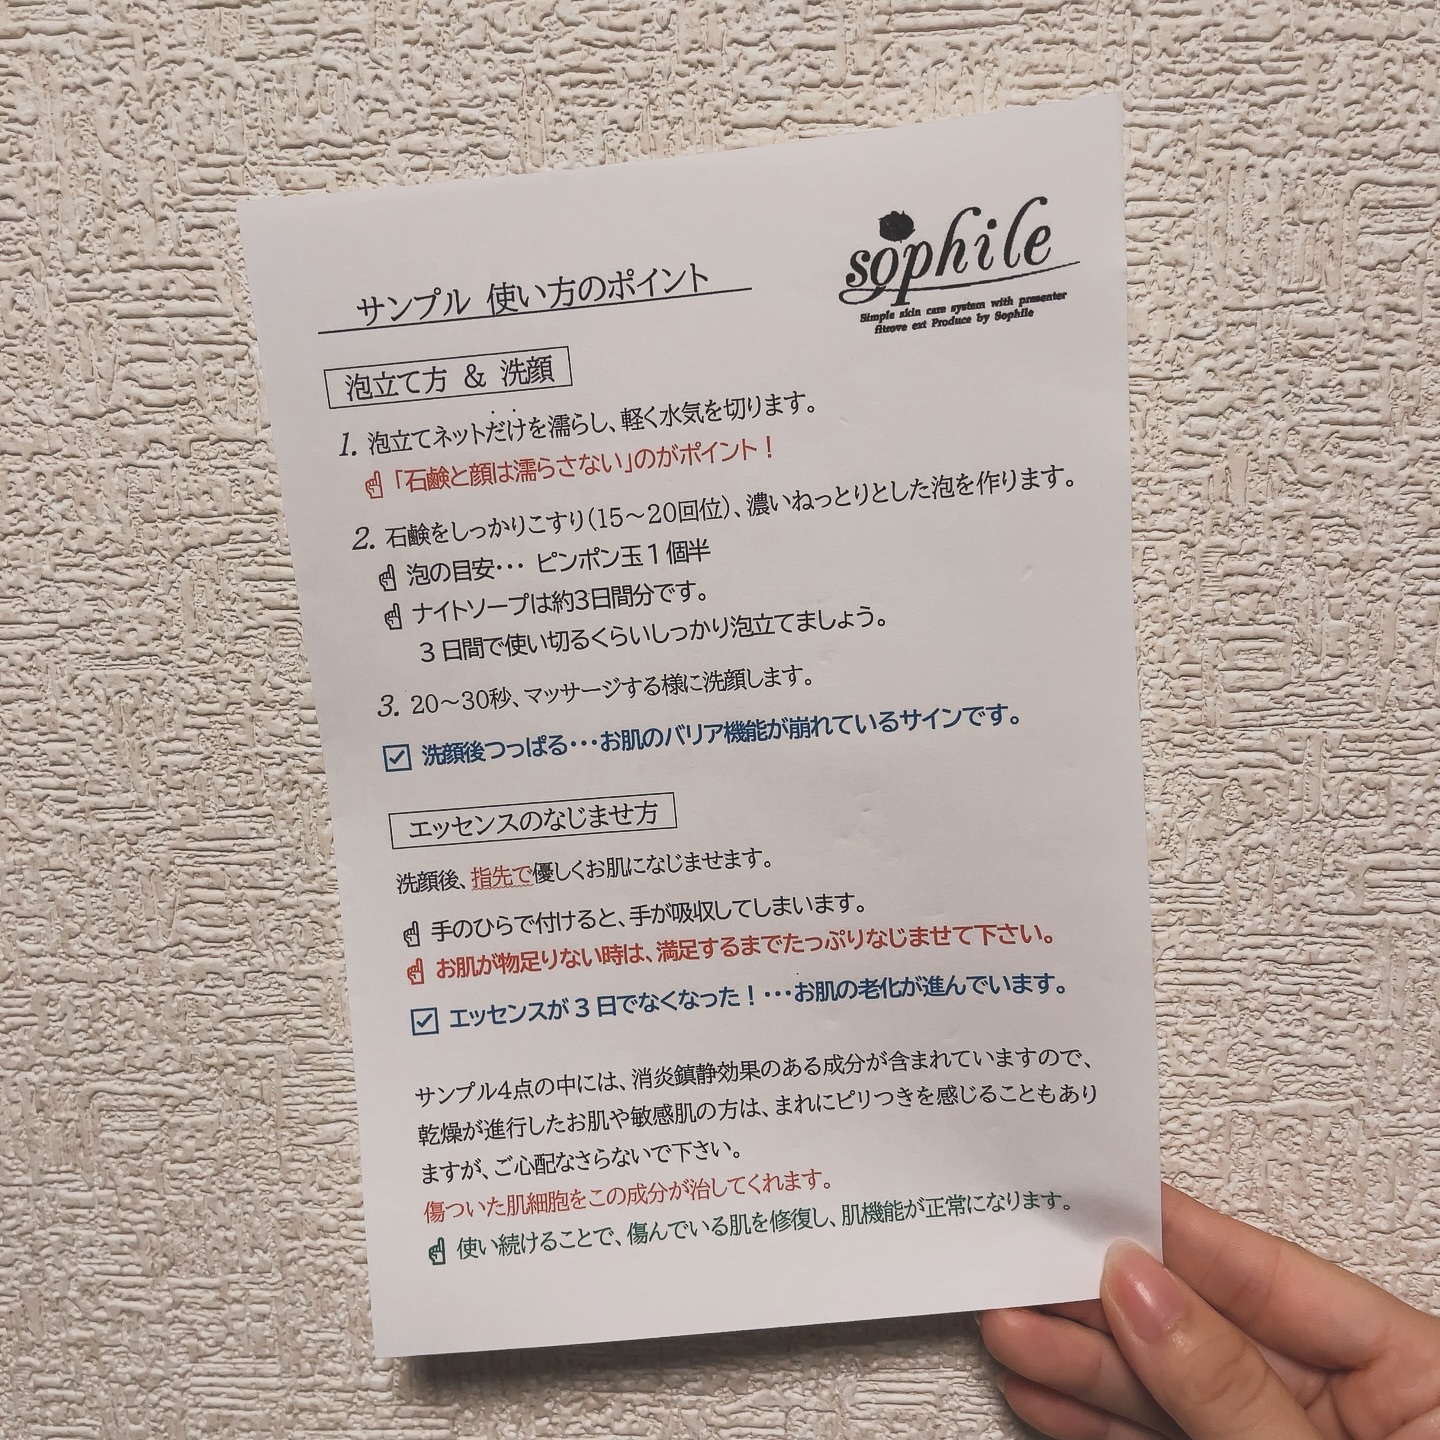 sophile
Simple skin care system with presenter
fitrove ext Produce by Sophile
サンプル 使い方のポイント
泡立て方 & 洗顔
1. 泡立てネットだけを濡らし、軽く水気を切ります。
☝「石鹸と顔は濡らさない」のがポイント！
2. 石鹸をしっかりこすり(15～20回位)、濃いねっとりとした泡を作ります。
☝ 泡の目安… ピンポン玉1個半
☝ ナイトソープは約3日間分です。
3日間で使い切るくらいしっかり泡立てましょう。
3. 20～30秒、マッサージする様に洗顔します。
☑ 洗顔後つっぱる…お肌のバリア機能が崩れているサインです。
エッセンスのなじませ方
洗顔後、指先で優しくお肌になじませます。
☝ 手のひらで付けると、手が吸収してしまいます。
☝ お肌が物足りない時は、満足するまでたっぷりなじませて下さい。
☑ エッセンスが3日でなくなった！…お肌の老化が進んでいます。
サンプル4点の中には、消炎鎮静効果のある成分が含まれていますので、
乾燥が進行したお肌や敏感肌の方は、まれにピリつきを感じることもあり
ますが、ご心配なさらないで下さい。
傷ついた肌細胞をこの成分が治してくれます。
☝ 使い続けることで、傷んでいる肌を修復し、肌機能が正常になります。